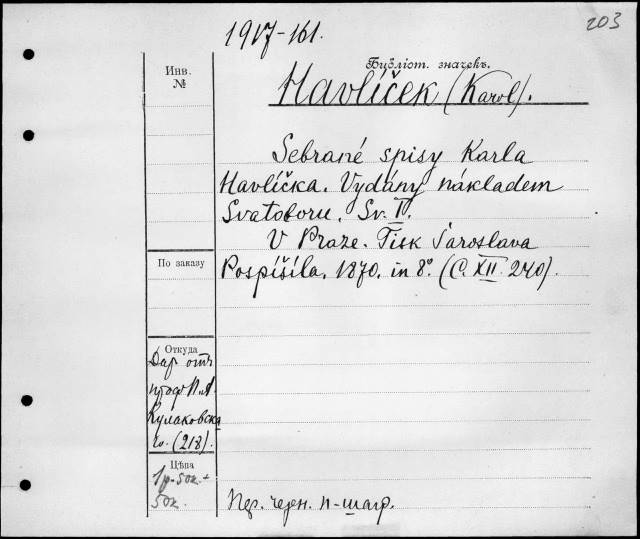 203
1917-161.
Инв.
№
Библіот. значекъ.
Havlíček (Karol).
Sebrané spisy Karla
Havlíčka. Vydány nákladem
Svatoboru. Sv. I.
V Praze. Tisk Jaroslava
Pospíšila. 1870. in 8º. (C. XII. 240).
По заказу
Откуда
Дар отъ
проф П. А.
Кулаковска
го. (218).
Цѣна
1р-50к.+
50к.
Пер. черн. п-шагр.